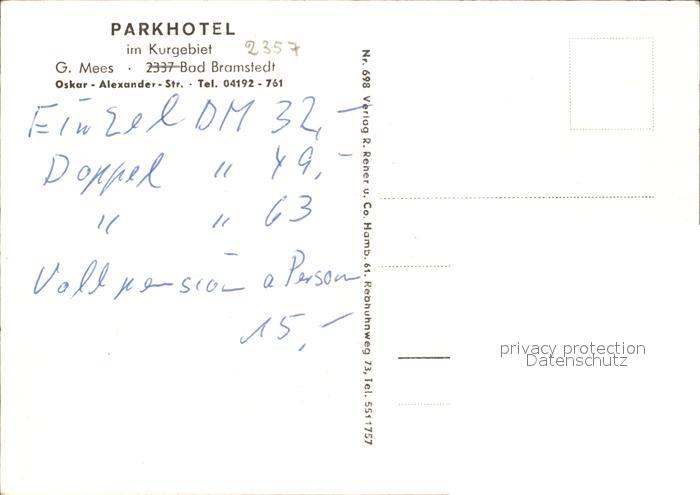 PARKHOTEL
im Kurgebiet 2357
G. Mees · 2337 Bad Bramstedt
Oskar - Alexander - Str. · Tel. 04192 - 761
Einzel DM 32,-
Doppel " 49,-
" " 63
Vollpension a Person
15,-
Nr. 698 Verlag R. Rener u. Co. Hamb. 61. Rebhuhnweg 73, Tel. 5511757
privacy protection
Datenschutz